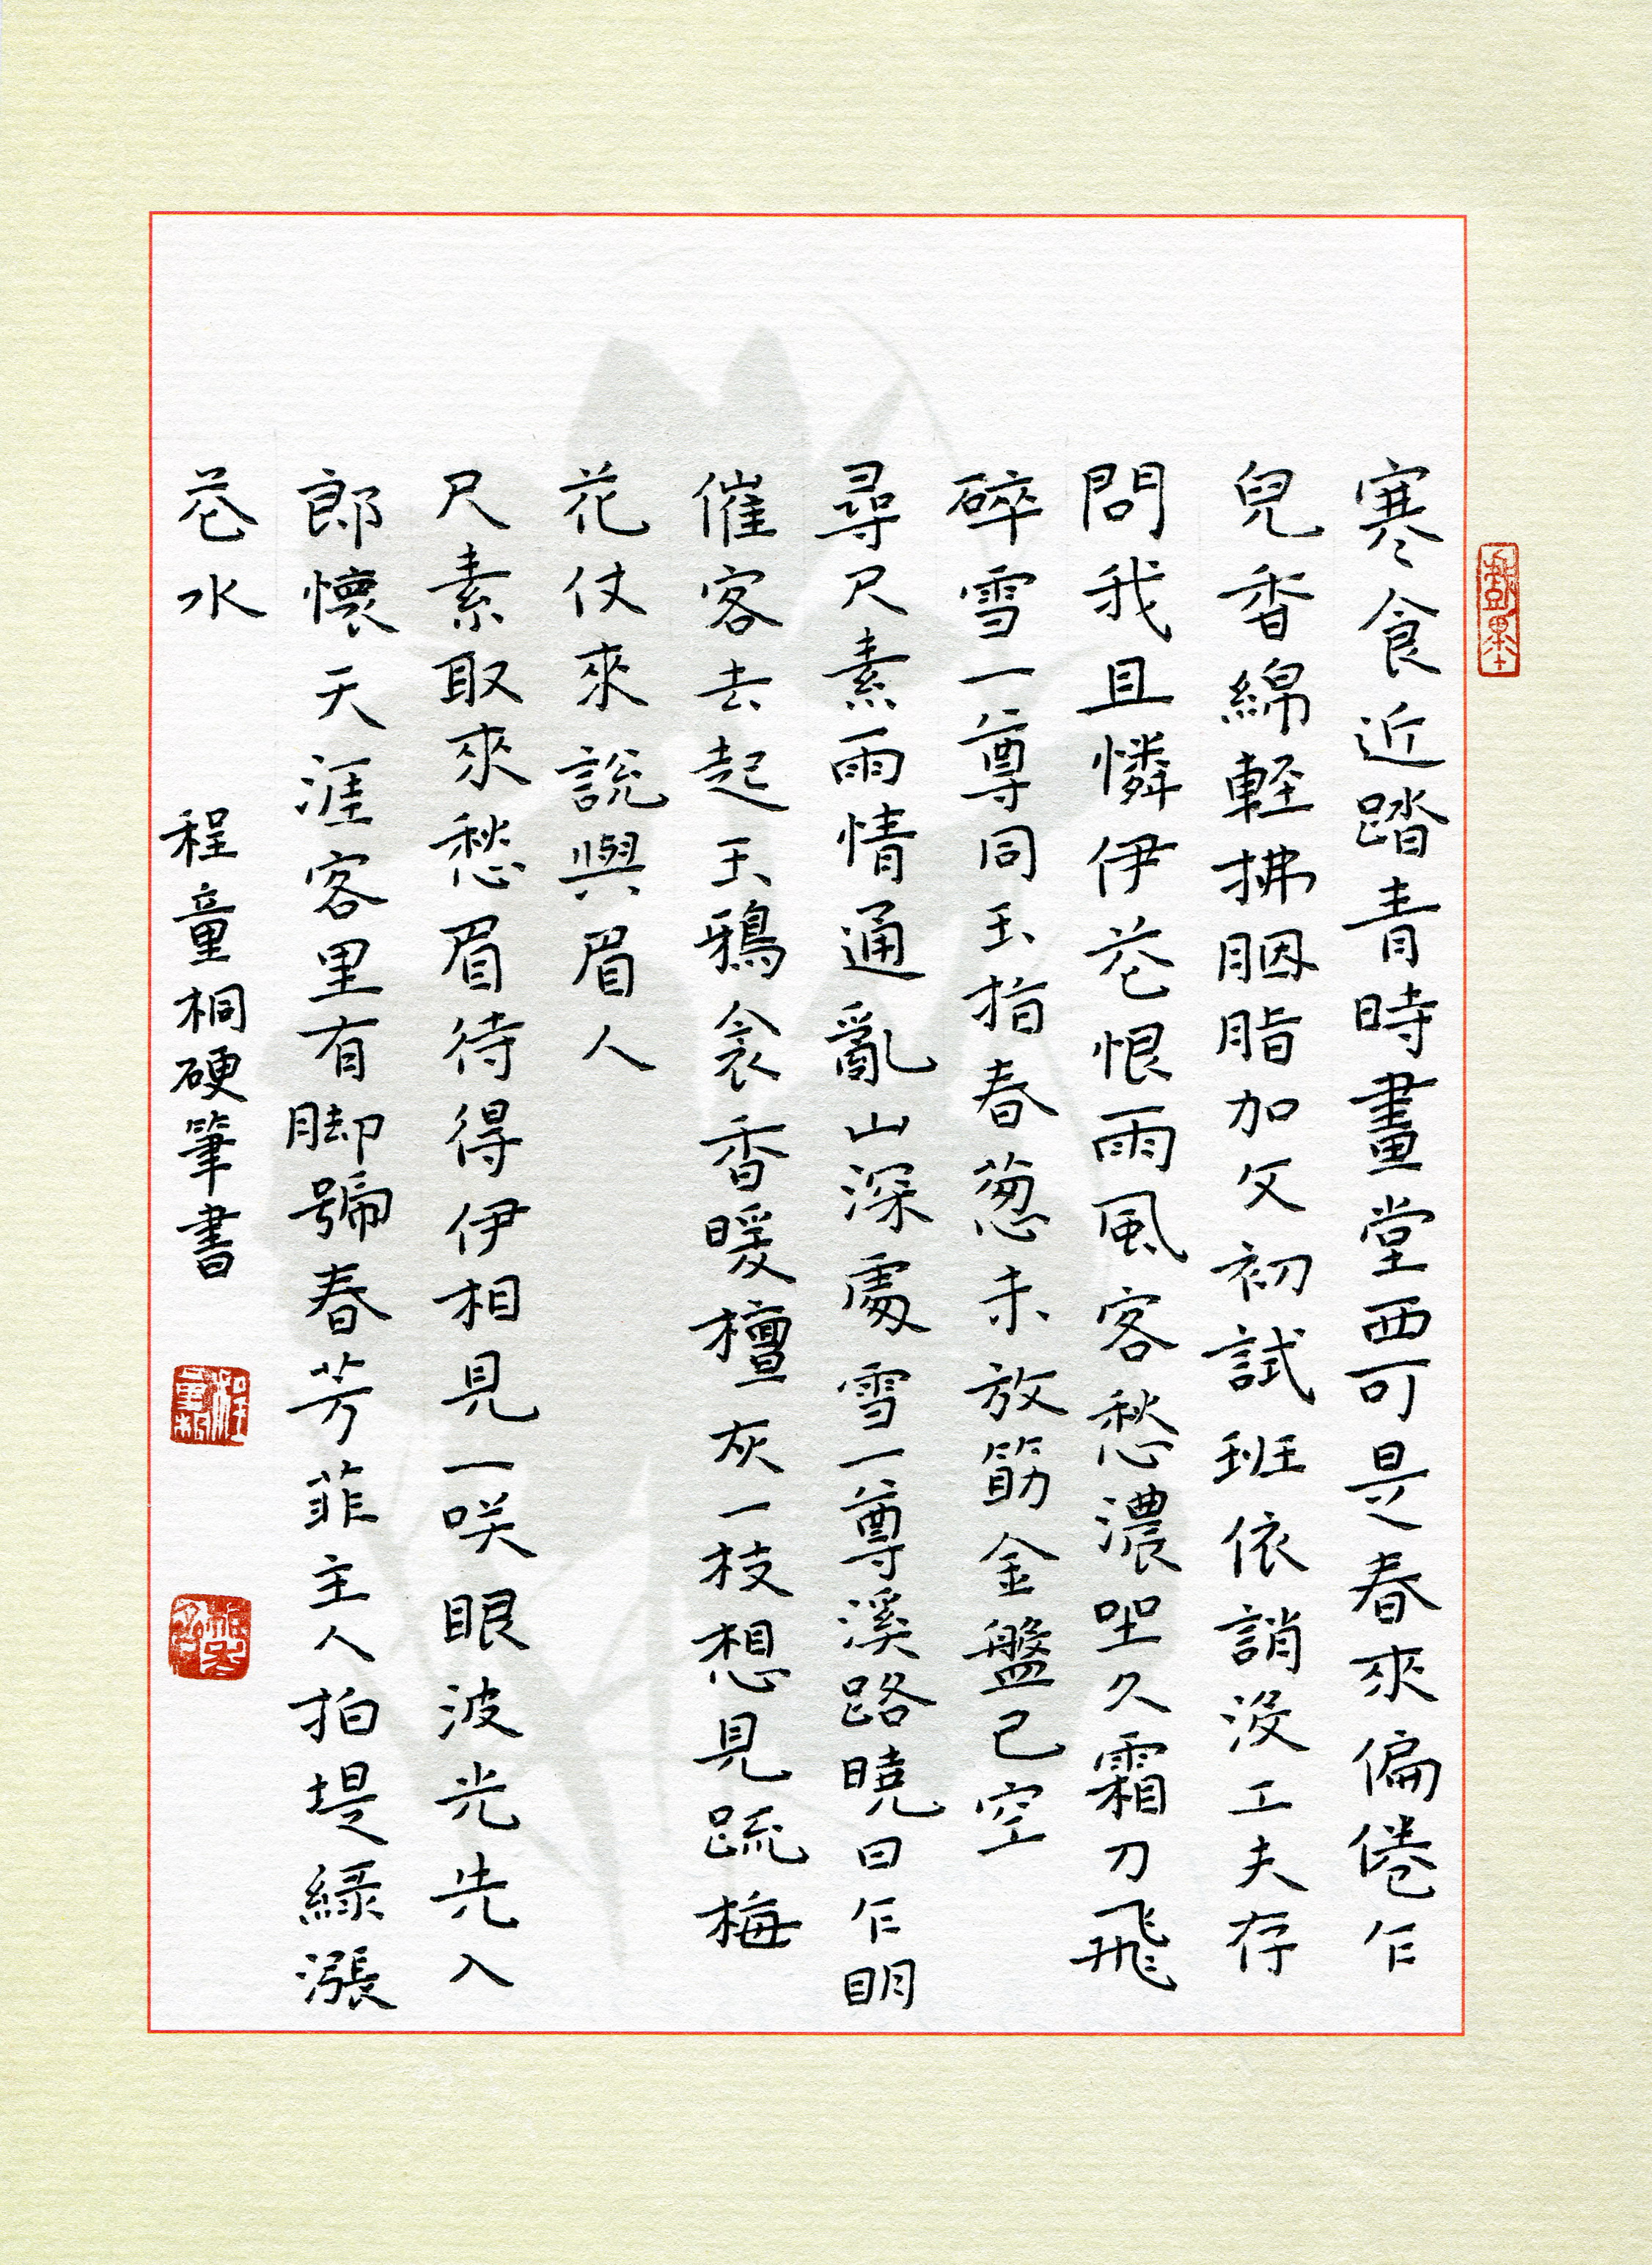 寒食近踏青時畫堂西可是春來偏倦乍
兒香綿輕拂胭脂加文初試班依誚沒工夫存
問我且憐伊花恨雨風客愁濃坐久霜刀飛
碎雪一尊同玉指春葱未放筯金盤已空
尋尺素雨情通亂山深處雪一尊溪路曉日乍明
催客去起玉鴉衾香暖檀灰一枝想見疏梅
花仗來說與眉人
尺素取來愁眉待得伊相見一咲眼波光先入
郎懷天涯客里有脚號春芳菲主人拍堤綠漲
花水 程童桐硬筆書